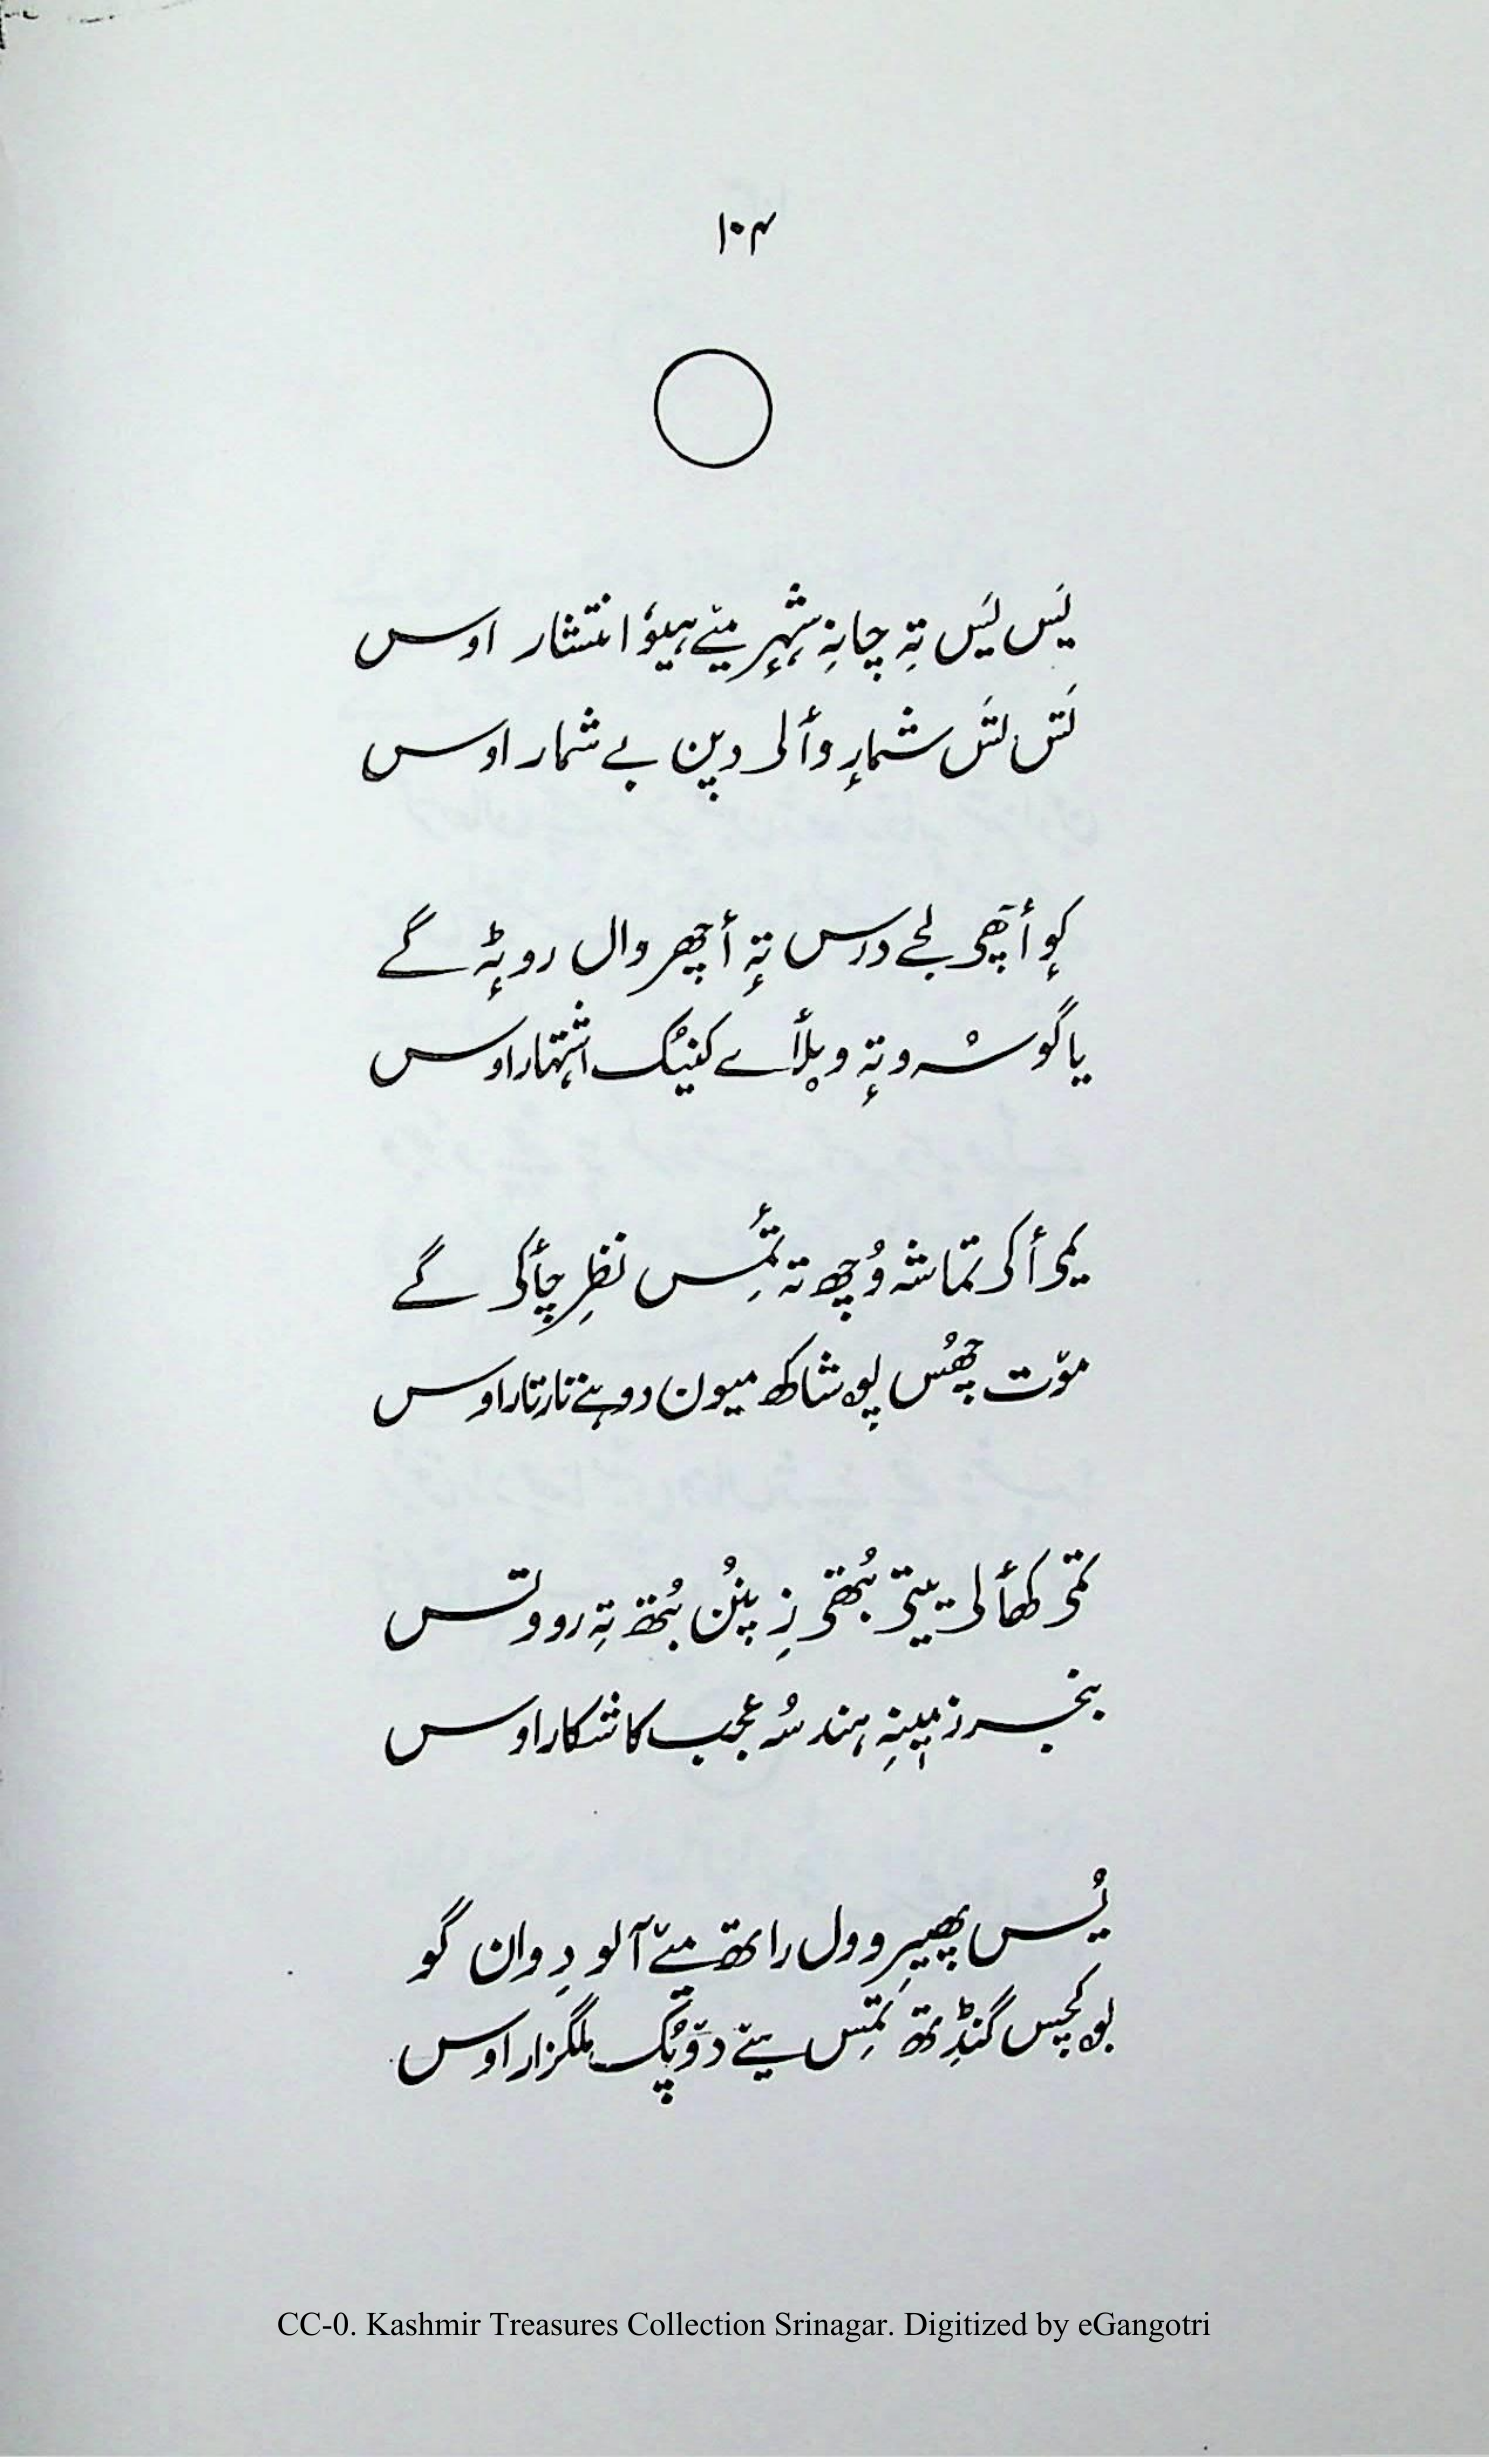 ۱۰۴
یَس یَس تہِ چانہِ شہرٕ میٚے ہیوٗ انتشار اوس
تَس تَس شمارٕ وٲلی دپن بے شمار اوس
کوٕ أچھی لجے درس تہٕ أچھر وال روٹہٕ گے
یا گوسہ وتہٕ وبلٲے کنیُک اشتہار اوس
یمی أکی تماشہ وُچھ تہ تٔمِس نظرِ چٲکی گے
موٚت چھُس پوشاکھ میون دوہے تارتار اوس
تمی کھٲلی ییتی بُتھی زِ پنُن بُتھ تہِ رووتس
بنجر زمیٖنہِ ہند سُہ عجب کاشکار اوس
یُس پھیرِ وول راتھ میٚے آلو دِوان گو
بوکچس گنڈِتھ تَمِس یے دوٚپُک ملگزار اوس
CC-0. Kashmir Treasures Collection Srinagar. Digitized by eGangotri